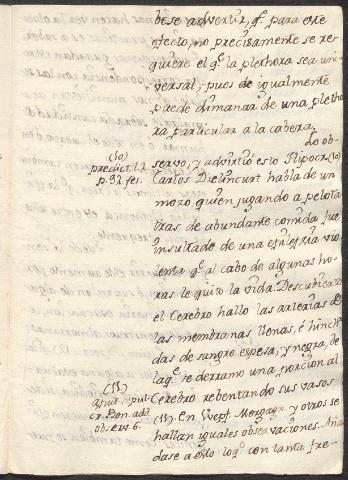 bese advertir, q.e para este
efecto, no precisamente se res-
quiere el q.e la plethora sea uni-
versal; pues de igualmente
puede dimanar de una pletho
ra particular a la cabeza.
Lo ob-
servo, y advirtió esto Hipocr. (10)
(10)
predict. l. 2.
p. 82
Carlos Drelincurt habla de un
mozo quien jugando a pelota
tras de abundante comida fue
insultado de una epilepsia vio
lenta q.e al cabo de algunas ho-
ras le quito la vida. Descubierto
el Cerebro hallo las arterias de
las membranas llenas, é hincha
das de sangre espesa, y negra, de
la q.e se derramo una porcion al
Cerebro rebentando sus vasos
(11)
apud
Bon. add.
observ. 6.
(11). En Wepf. Morgagn. y otros se
hallan iguales observaciones. Aña
dase a esto lo q.e con tanta fre-